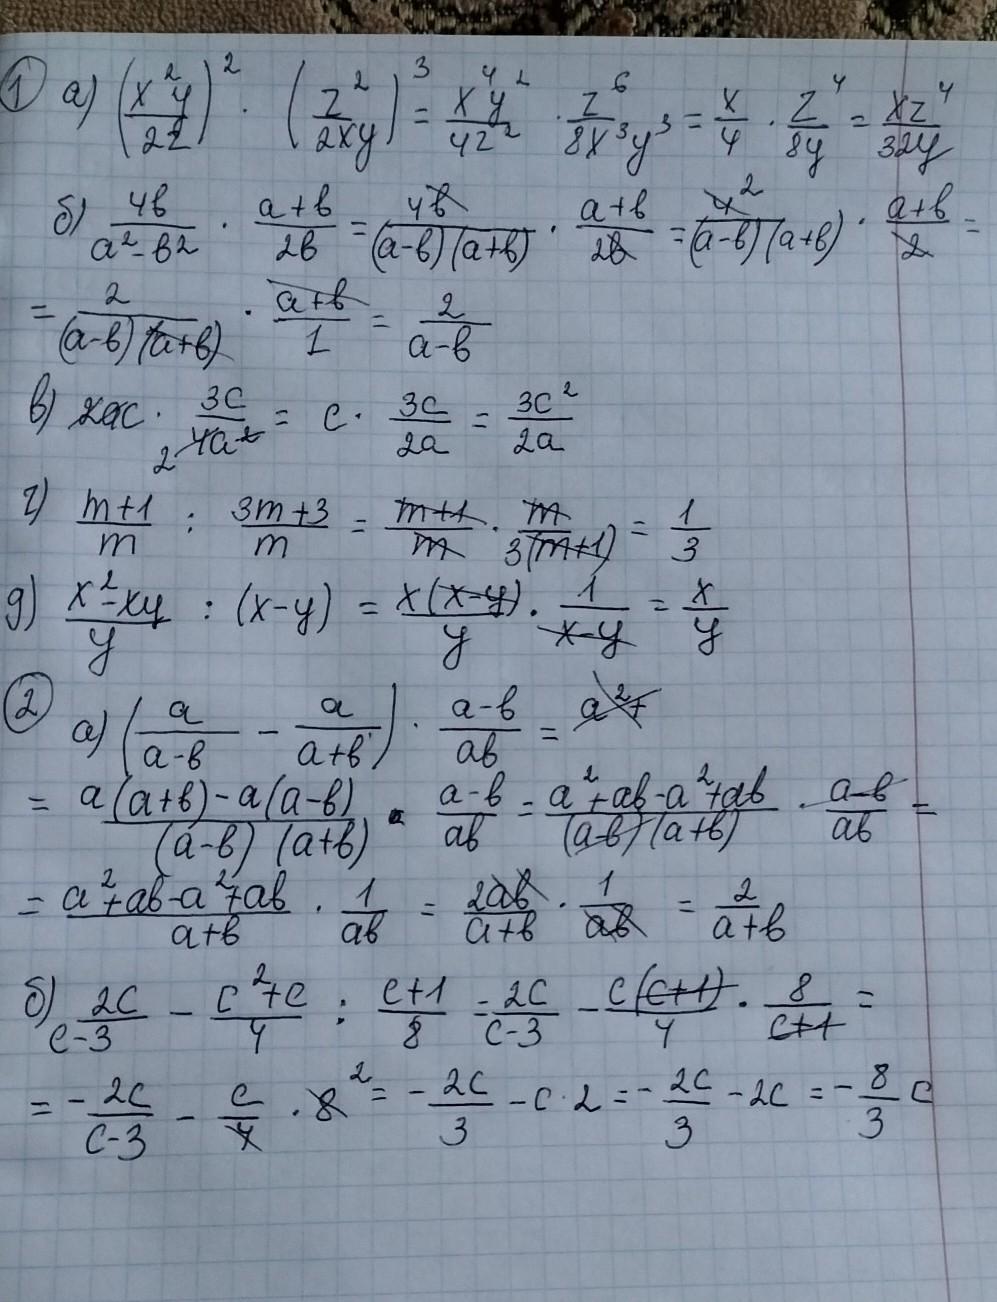 ① а) (x²y/2z)² · (z²/2xy)³ = x⁴y²/4z² · z⁶/8x³y³ = x/4 · z⁴/8y = xz⁴/32y
б) 4в/a²-в² · a+в/2в = 4в/(a-в)(a+в) · a+в/2в = 4²/(a-в)(a+в) · a+в/2 =
= 2/(a-в)(a+в) · a+в/1 = 2/a-в
в) 2ac · 3c/2 4a² = c · 3c/2a = 3c²/2a
г) m+1/m : 3m+3/m = m+1/m · m/3(m+1) = 1/3
д) x²-xy/y : (x-y) = x(x-y)/y · 1/x-y = x/y
② а) (a/a-в - a/a+в) · a-в/ aв =
= a(a+в)-a(a-в)/(a-в)(a+в) · a-в/aв = a²+aв-a²+aв/(a-в)(a+в) · a-в/aв =
= a²+aв-a²+aв/a+в · 1/aв = 2aв/a+в · 1/aв = 2/a+в
б) 2c/c-3 - c²+c/4 : c+1/8 = 2c/c-3 - c(c+1)/4 · 8/c+1 =
= -2c/c-3 - c/4 · 8² = -2c/3 - c·2 = -2c/3 - 2c = -8/3 c